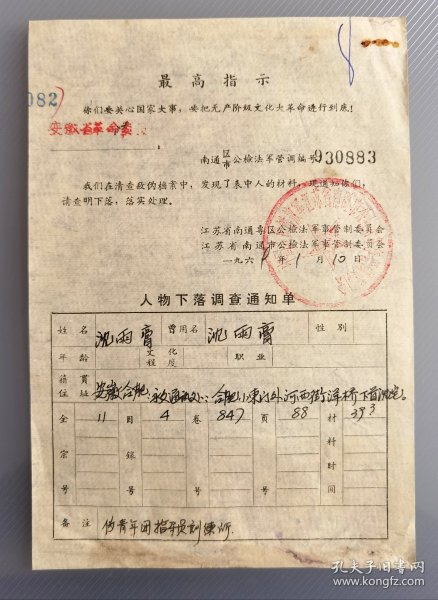 082
最高指示
你们要关心国家大事，要把无产阶级文化大革命进行到底！
安徽省革命委
南通区市公检法军管调编号930883
我们在清查敌伪档案中，发现了表中人的材料，现通知你们，
请查明下落，落实处理。
江苏省南通专区公检法军事管制委员会
江苏省南通市公检法军事管制委员会
一九六 年1月10日
人物下落调查通知单
姓名 沈雨膏 曾用名 沈雨膏 性别
年龄 文化程度 职业
籍贯住址 安徽合肥 合肥小东门外河西街洋桥下首
全宗号 11 目录号 4 卷号 847 页号 88 材料时间 393
备注 伪青年团指导员训练所
孔夫子旧书网
www.kongfz.com